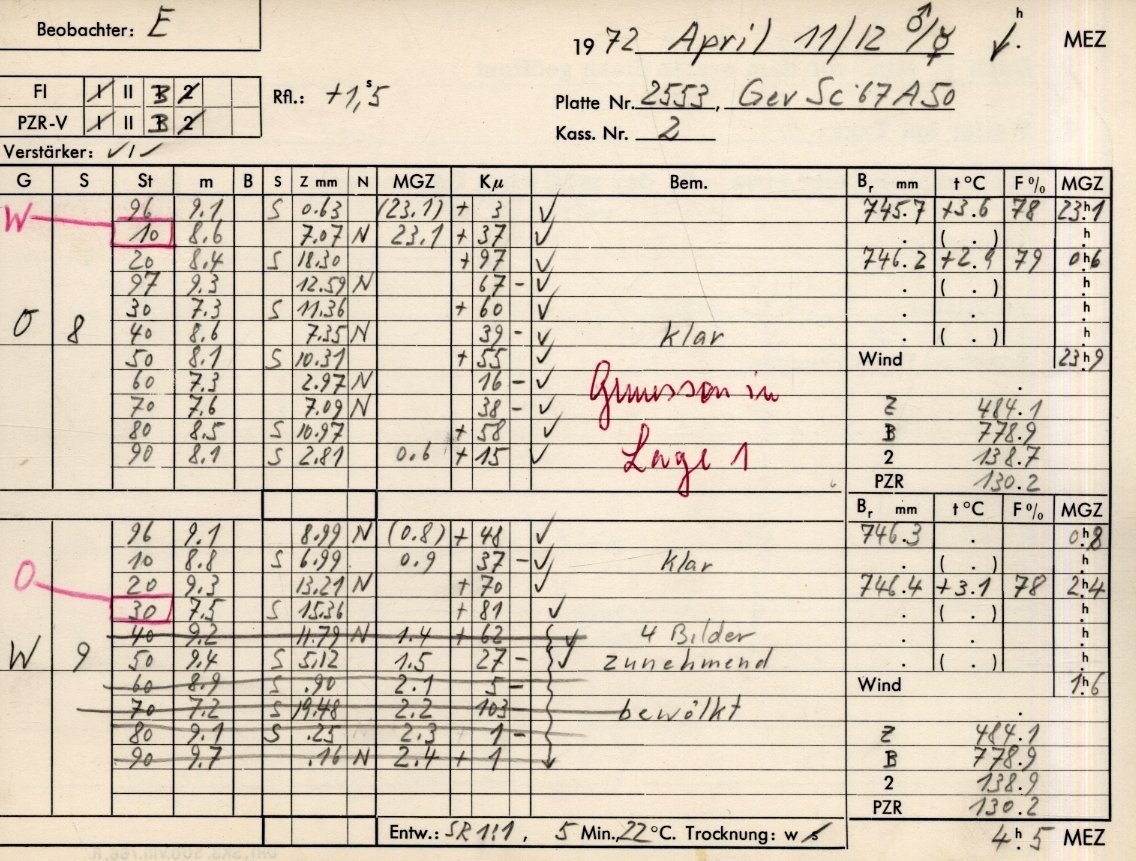 Beobachter: E
19 72 April 11/12 ♂/☿ h . MEZ
FI I II 3 2
PZR-V I II 3 2
Rfl.: +1,s5
Platte Nr. 2553, GevSc 67A50
Kass. Nr. 2
Verstärker: I
G S St m B S Z mm N MGZ Kμ Bem. Br mm t°C F% MGZ
W 96 9.1 S 0.63 (23.1) + 3 745.7 +3.6 78 23h1
10 8.6 7.07 N 23.1 + 37 . ( . ) h
20 8.4 S 18.30 +97 746.2 +2.9 79 0h6
97 9.3 12.59 N 67 - . ( . ) h
30 7.3 S 11.36 + 60 . . h
O 8 40 8.6 7.35 N 39 - klar . ( . ) h
50 8.1 S 10.31 +55 Wind 23h9
60 7.3 2.97 N 16 - Gemessen in .
70 7.6 7.09 N 38 - Z 484.1
80 8.5 S 10.97 + 58 B 778.9
90 8.1 S 2.81 0.6 + 15 Lage 1 2 138.7
PZR 130.2
Br mm t°C F% MGZ
96 9.1 8.99 N (0.8) + 48 746.3 . 0h8
O 10 8.8 S 6.99 0.9 37 - klar . ( . ) h
20 9.3 13.21 N + 70 746.4 +3.1 78 2h4
30 7.5 S 15.36 + 81 . ( . ) h
40 9.2 11.79 N 1.4 + 62 4 Bilder . . h
W 9 50 9.4 S 5.12 1.5 27 - zunehmend . ( . ) h
60 8.9 S .90 2.1 5 - Wind 1h6
70 7.2 S 19.48 2.2 103 - bewölkt .
80 9.1 S .25 2.3 1 - Z 484.1
90 9.7 .16 N 2.4 + 1 B 778.9
2 138.9
PZR 130.2
Entw.: SR 1:1, 5 Min., 22 °C. Trocknung: w s 4h.5 MEZ